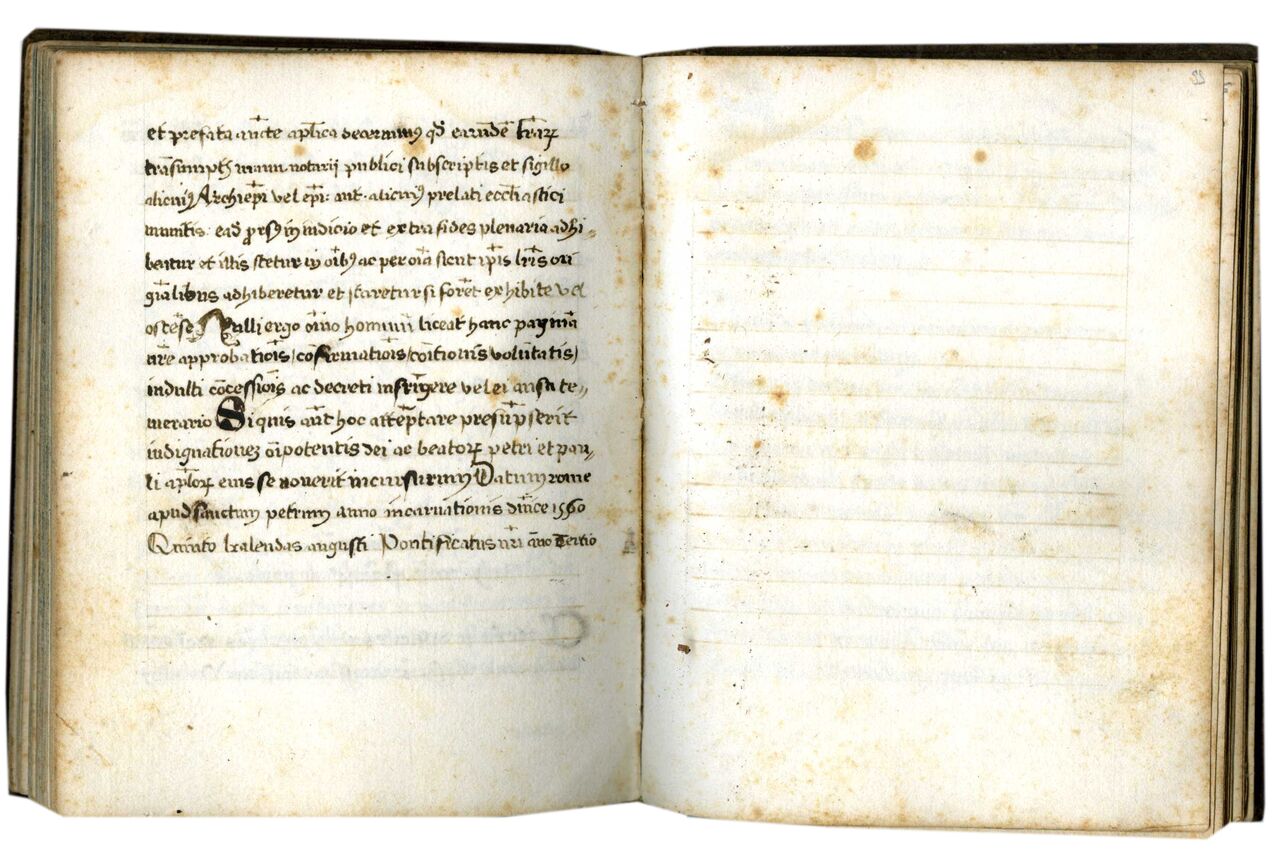 et prefata aucte aplica decernimus qd earundē lrarꝝ
trāsumptis manu notarij publici subscriptis et sigillo
alicuiꝰ Archiepi vel epi: aut alicuiꝰ prelati ecclīastici
munitis: eadē prorsꝰ in iudicio et extra fides plenaria adhi-
beatur et illis stetur in oibꝰ ac per oīa sicut ipis lris ori
ginalibus adhiberetur et staretur si forēt exhibite vel
ostēse Nulli ergo oīno hominū liceat hanc paginā
nrē approbatiōis/ cōfirmatiōis/ voluntatis/
indulti cōcessiōis ac decreti infrīgere vel ei ausu te-
merario Si quis aūt hoc attēptare presūpserit
indignationeʒ oīpotentis dei ac beatorꝝ petri et pau-
li aplorꝝ eius se noverit incursurum Datum rome
apud sanctum petrum anno incarnationis dnīce 1560
Quinto kalendas augusti Pontificatus nri āno Tertio